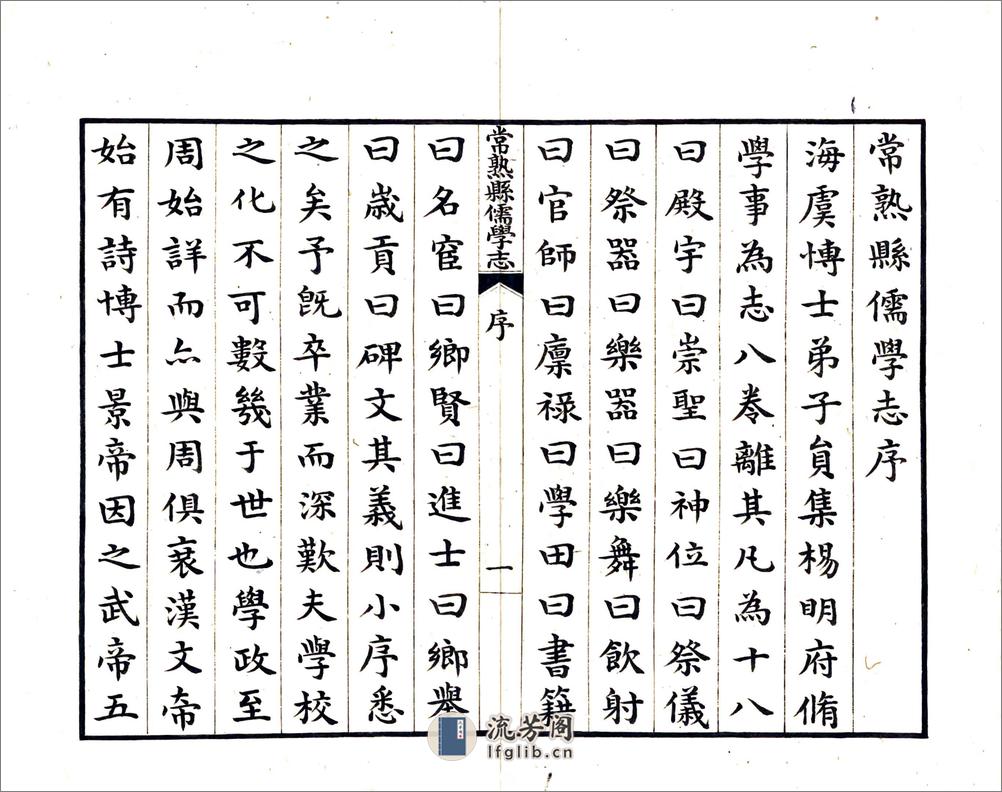 常熟縣儒學志序
海虞博士弟子員集楊明府脩
學事為志八卷離其凡為十八
曰殿宇曰崇聖曰神位曰祭儀
曰祭器曰樂器曰樂舞曰飲射
曰官師曰廪祿曰學田曰書籍
常熟縣儒學志
序
一
曰名宦曰鄉賢曰進士曰鄉舉
曰歲貢曰碑文其義則小序悉
之矣予旣卒業而深歎夫學校
之化不可數幾于世也學政至
周始詳而亦與周俱衰漢文帝
始有詩博士景帝因之武帝五
流芳阁
lfglib.cn